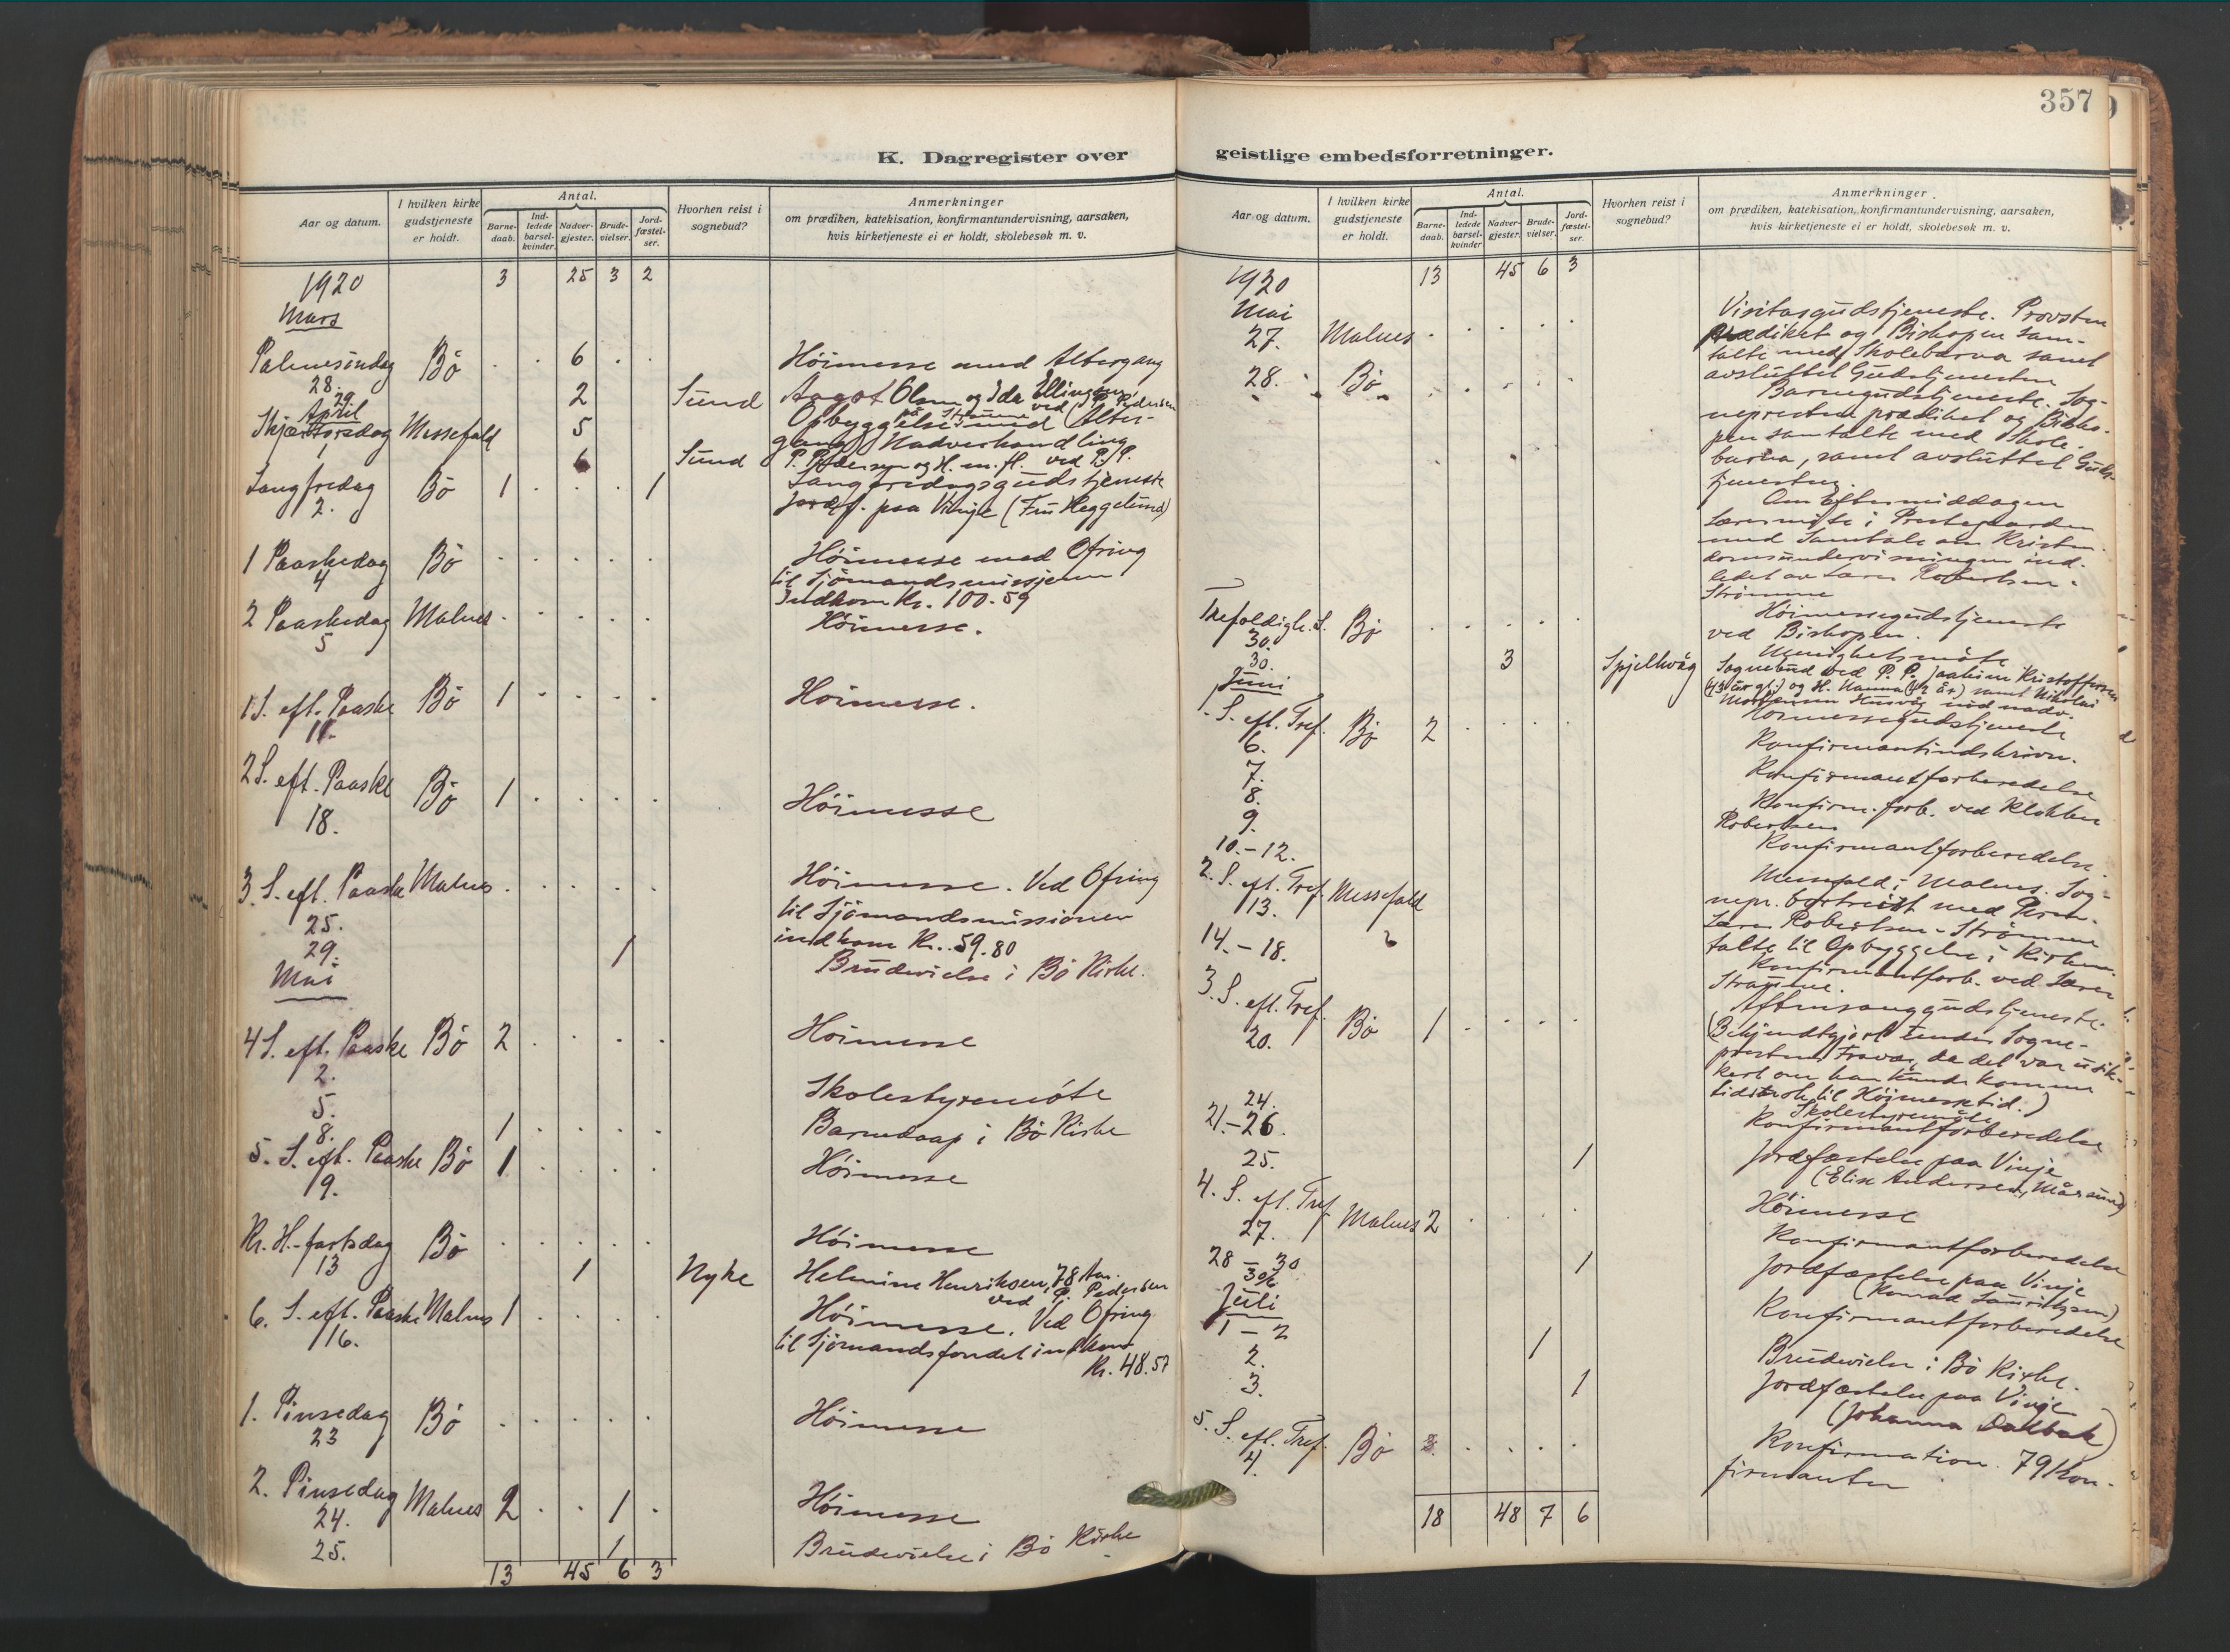 357
K. Dagregister over
Aar og datum. I hvilken kirke gudstjeneste er holdt. Antal. Barnedaab. Indledede barselkvinder. Nadvergjester. Brudevielser. Jordfæstelser. Hvorhen reist i sognebud? Anmerkninger om prædiken, katekisation, konfirmantundervisning, aarsaken, hvis kirketjeneste ei er holdt, skolebesøk m. v.
1920 3 25 3 2
Mars
Palmesöndag Bö . . 6 . . Höimesse med Altergang
28.
29. 2 Sund Aagot Olsen og Ida Ellingsen ved P. Pedersen
April
Skjærtorsdag Messefald 5 Opbyggelse på Straume med Alter-
1 gang Nadverhandling
6 Sund P. Pedersen og H. m. fl. ved P. P.
Langfredag Bö 1 . . . 1 Langfredagsgudstjeneste
2. Jordf. paa Vinje (Fru Heggelund)
1 Paaskedag Bö . . . . . Höimesse med Ofring
4 til Sjömandsmissjonen
Indkom Kr. 100.59
2 Paaskedag Malnes . . . . . Höimesse.
5
1 S. eft. Paaske Bö 1 . . . . Höimesse.
11.
2 S. eft. Paaske Bö 1 . . . . Höimesse
18.
3. S. eft. Paaske Malnes . . . . . Höimesse. Ved Ofring
25. til Sjömandsmissionen
indkom Kr. 59.80
29. 1 Brudevielse i Bö Kirke.
Mai
4 S. eft. Paaske Bö 2 . . . . Höimesse
2.
5. Skolestyremöte
8. 1 . . . . Barnedaap i Bö Kirke
5. S. eft. Paaske Bö 1 . . . . Höimesse
9.
Kr. H.-fartsdag Bö . . . . . Höimesse
13 1 Nyke Helmine Henriksen, 78 Aar.
ved P. Pedersen
6. S. eft. Paaske Malnes 1 . . . . Höimesse. Ved Ofring
16. til Sjömandsfondet indkom
Kr. 48.57
1. Pinsedag Bö . . . . . Höimesse
23
2. Pinsedag Malnes 2 . . 1 . Höimesse
24.
25. 1 Brudevielse i Bö Kirke
13 45 6 3
geistlige embedsforretninger.
Aar og datum. I hvilken kirke gudstjeneste er holdt. Antal. Barnedaab. Indledede barselkvinder Nadvergjester. Brudevielser. Jordfæstelser. Hvorhen reist i sognebud? Anmerkninger om prædiken, katekisation, konfirmantundervisning, aarsaken, hvis kirketjeneste ei er holdt, skolebesøk m. v.
1920 13 45 6 3
Mai
27. Malnes . . . . . Visitasgudstjeneste. Provsten
prædiket og Biskopen sam-
talte med Skolebarna samt
avsluttet Gudstjenesten
28. Bö . . . . . Barnegudstjeneste. Sog-
nepresten prædiket og Bisko-
pen samtalte med Skole-
barna, samt avsluttet Guds-
tjenesten.
Om Eftermiddagen
Læremöte i Prestegaarden
med Samtale om Kristen-
domsundervisningen ind-
ledet av Lærer Robertsen-
Strömme
Trefoldigh. S. Bö . . . . . Höimessegudstjeneste
30. ved Biskopen.
Menighetsmöte
30. 3 Spjelkvåg Sognebud ved P. P. Joakim Kristoffersen
(43 år gl.) og H. Hanna (42 år) samt Nikolai
Mortensen Husvåg med nadv.
Juni
1. S. eft. Tref. Bö 2 . . . . Höimessegudstjeneste
6.
7. Konfirmantindskrivn.
8. Konfirmantforberedelse
9. Konfirm. forb. ved Klokker
Robertsen
10.-12. Konfirmantforberedelse.
2. S. eft. Tref. Messefald Messefald i Malnes. Sog-
13. nepr. bortreist med Perm.
Lærer Robertsen-Strömme
talte til Opbyggelse i Kirken.
14.-18. Konfirmantforb. ved Lærer
Straume.
3. S. eft. Tref. Bö 1 . . . . Aftensanggudstjeneste.
20. (Bekjendtgjort under Sogne-
prestens Fravær, da det var usik-
kert om han kunde komme
tidsnok til Höimessetid.)
24. Skolestyremöte
21.-26. Konfirmantforberedelse
25. 1 Jordfæstelse paa Vinje
(Elise Andersen, Mårsund)
4. S. eft. Tref. Malnes 2 . . . . Höimesse
27.
28-30 Konfirmantforberedelse
30/6 1 Jordfæstelse paa Vinje
(Konrad Lauritzsen)
Juli
1-2 Konfirmantforberedelse
2. 1 Brudevielse i Bö Kirke.
3. 1 Jordfæstelse paa Vinje
(Johanna Dalbak)
5. S. eft. Tref. Bö . . . . Konfirmation. 79 Kon-
4. firmanter
18 48 7 6